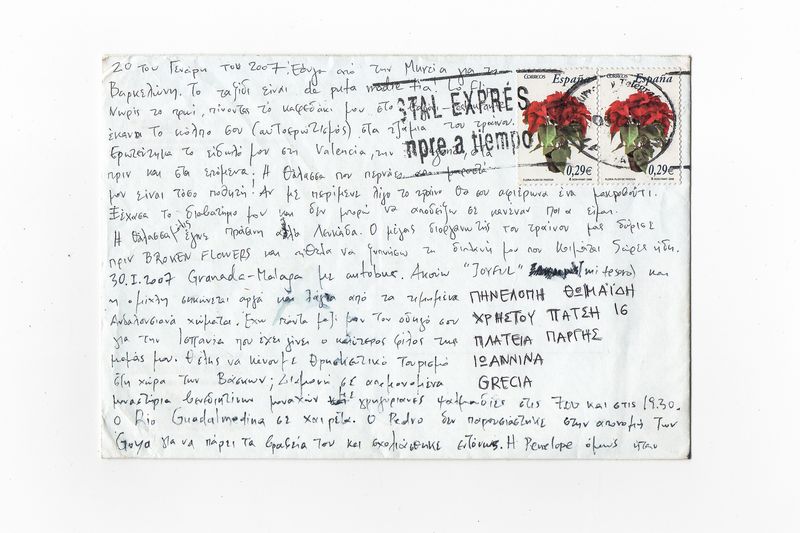 20 του Γενάρη του 2007. Έφυγα από την Murcia για τη
Βαρκελώνη. Το ταξίδι είναι de puta madre. Για το
Νωρίς το πρωί, πίνοντας το καφεδάκι μου στο
έκανα το κόλπο σου (αυτοερωτισμός) στα τζάμια του τραίνου.
Ερωτεύτηκα το είδωλό μου στη Valencia, την
πριν και στα επόμενα. Η θάλασσα που περνάω
μου είναι τόσο ποθητή! Αν με περίμενε λίγο το τραίνο θα σου αφιέρωνα ένα μακροβούτι.
Ξέχασα το διαβατήριό μου και δεν μπορώ να αποδείξω σε κανέναν ποια είμαι.
Η θάλασσα μόλις έγινε πράσινη αλλά λευκάδα. Ο μέγας διοργανωτής του τραίνου μας δώρισε
πριν BROKEN FLOWERS και ήθελα να ξυπνήσω τη διπλανή μου που κοιμάται 5 ώρες ήδη.
30.I.2007 Granada-Malaga με autobus. Ακούω "JOYFUL" (mi tesoro) και
η ομίχλη σηκώνεται αργά και από τα τιμημένα
Ανδαλουσιανά χώματα. Έχω πάντα μαζί μου τον οδηγό σου
για την Ισπανία που έχει γίνει ο καλύτερος φίλος της
μαμάς μου. Θέλεις να κάνουμε θρησκευτικό τουρισμό
στη χώρα των Βάσκων; Διαμονή σε απομονωμένα
μοναστήρια βενεδικτίνων μοναχών και γρηγοριανές ψαλμωδίες στις 7:00 και στις 19.30.
Ο Rio Guadalmedina σε χαιρετά. Ο Pedro δεν παρουσιάστηκε στην απονομή των
Goya για να πάρει τα βραβεία του και σχολιάστηκε εντόνως. Η Penelope όμως ήταν
ΠΗΝΕΛΟΠΗ ΘΩΜΑΪΔΗ
ΧΡΗΣΤΟΥ ΠΑΤΣΗ 16
ΠΛΑΤΕΙΑ ΠΑΡΓΗΣ
ΙΩΑΝΝΙΝΑ
GRECIA
STAL EXPRÉS
mpre a tiempo
CORREOS España
0,29€
CORREOS España
0,29€